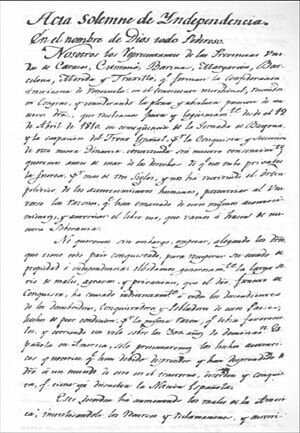 Acta Solemne de Independencia.
En el nombre de Dios todo Poderoso.
Nosotros los Representantes de las Provincias Uni-
das de Caracas, Cumaná, Barinas, Margarita, Bar-
celona, Mérida y Truxillo, q.e forman la Confederacion
Americana de Venezuela en el continente meridional, reunidos
en Congreso, y considerando la plena y absoluta posesion de nu-
estros dros, que recobramos justa y legitimam.te desde el 19
de Abril de 1810 en conseqüencia de la Jornada de Bayona,
y la ocupacion del Trono Español, p.r la Conquista, y sucesion
de otra nueva Dinastia
queremos antes de usar de los derechos de q.e nos tubo privados
la fuerza, p.r mas de tres siglos, y nos ha restituido el orden
politico de los acontecimientos humanos, patentizar al Uni-
verso las razones, q.e han emanado de estos mismos aconteci-
mientos, y autorizan el libre uso, que vamos á hacer de nues-
tra Soberania.
No queremos sin embargo, empezar, alegando los dros,
que tiene todo pais conquistado, para recuperar su estado de
propiedad é independencia: olvidamos generosam.te la larga se-
rie de males, agravios, y privaciones, que el dro funesto de
Conquista, ha causado indistintam.te á todos los descendientes
de los descubridores, Conquistadores, y Pobladores de estos Paises,
y corriendo un velo sobre los 300 años de dominac.n Es-
pañola en America, solo presentaremos los hechos autenti-
cos y notorios q.e han debido desprender, y han desprendido de
dro á un mundo de otro en el trastorno, desorden y conquis-
ta, q.e tiene ya disuelta la Nacion Española.
Este desorden ha aumentado los males de la Ameri-
ca; inutilizandole los Recursos y Reclamaciones, y autori-